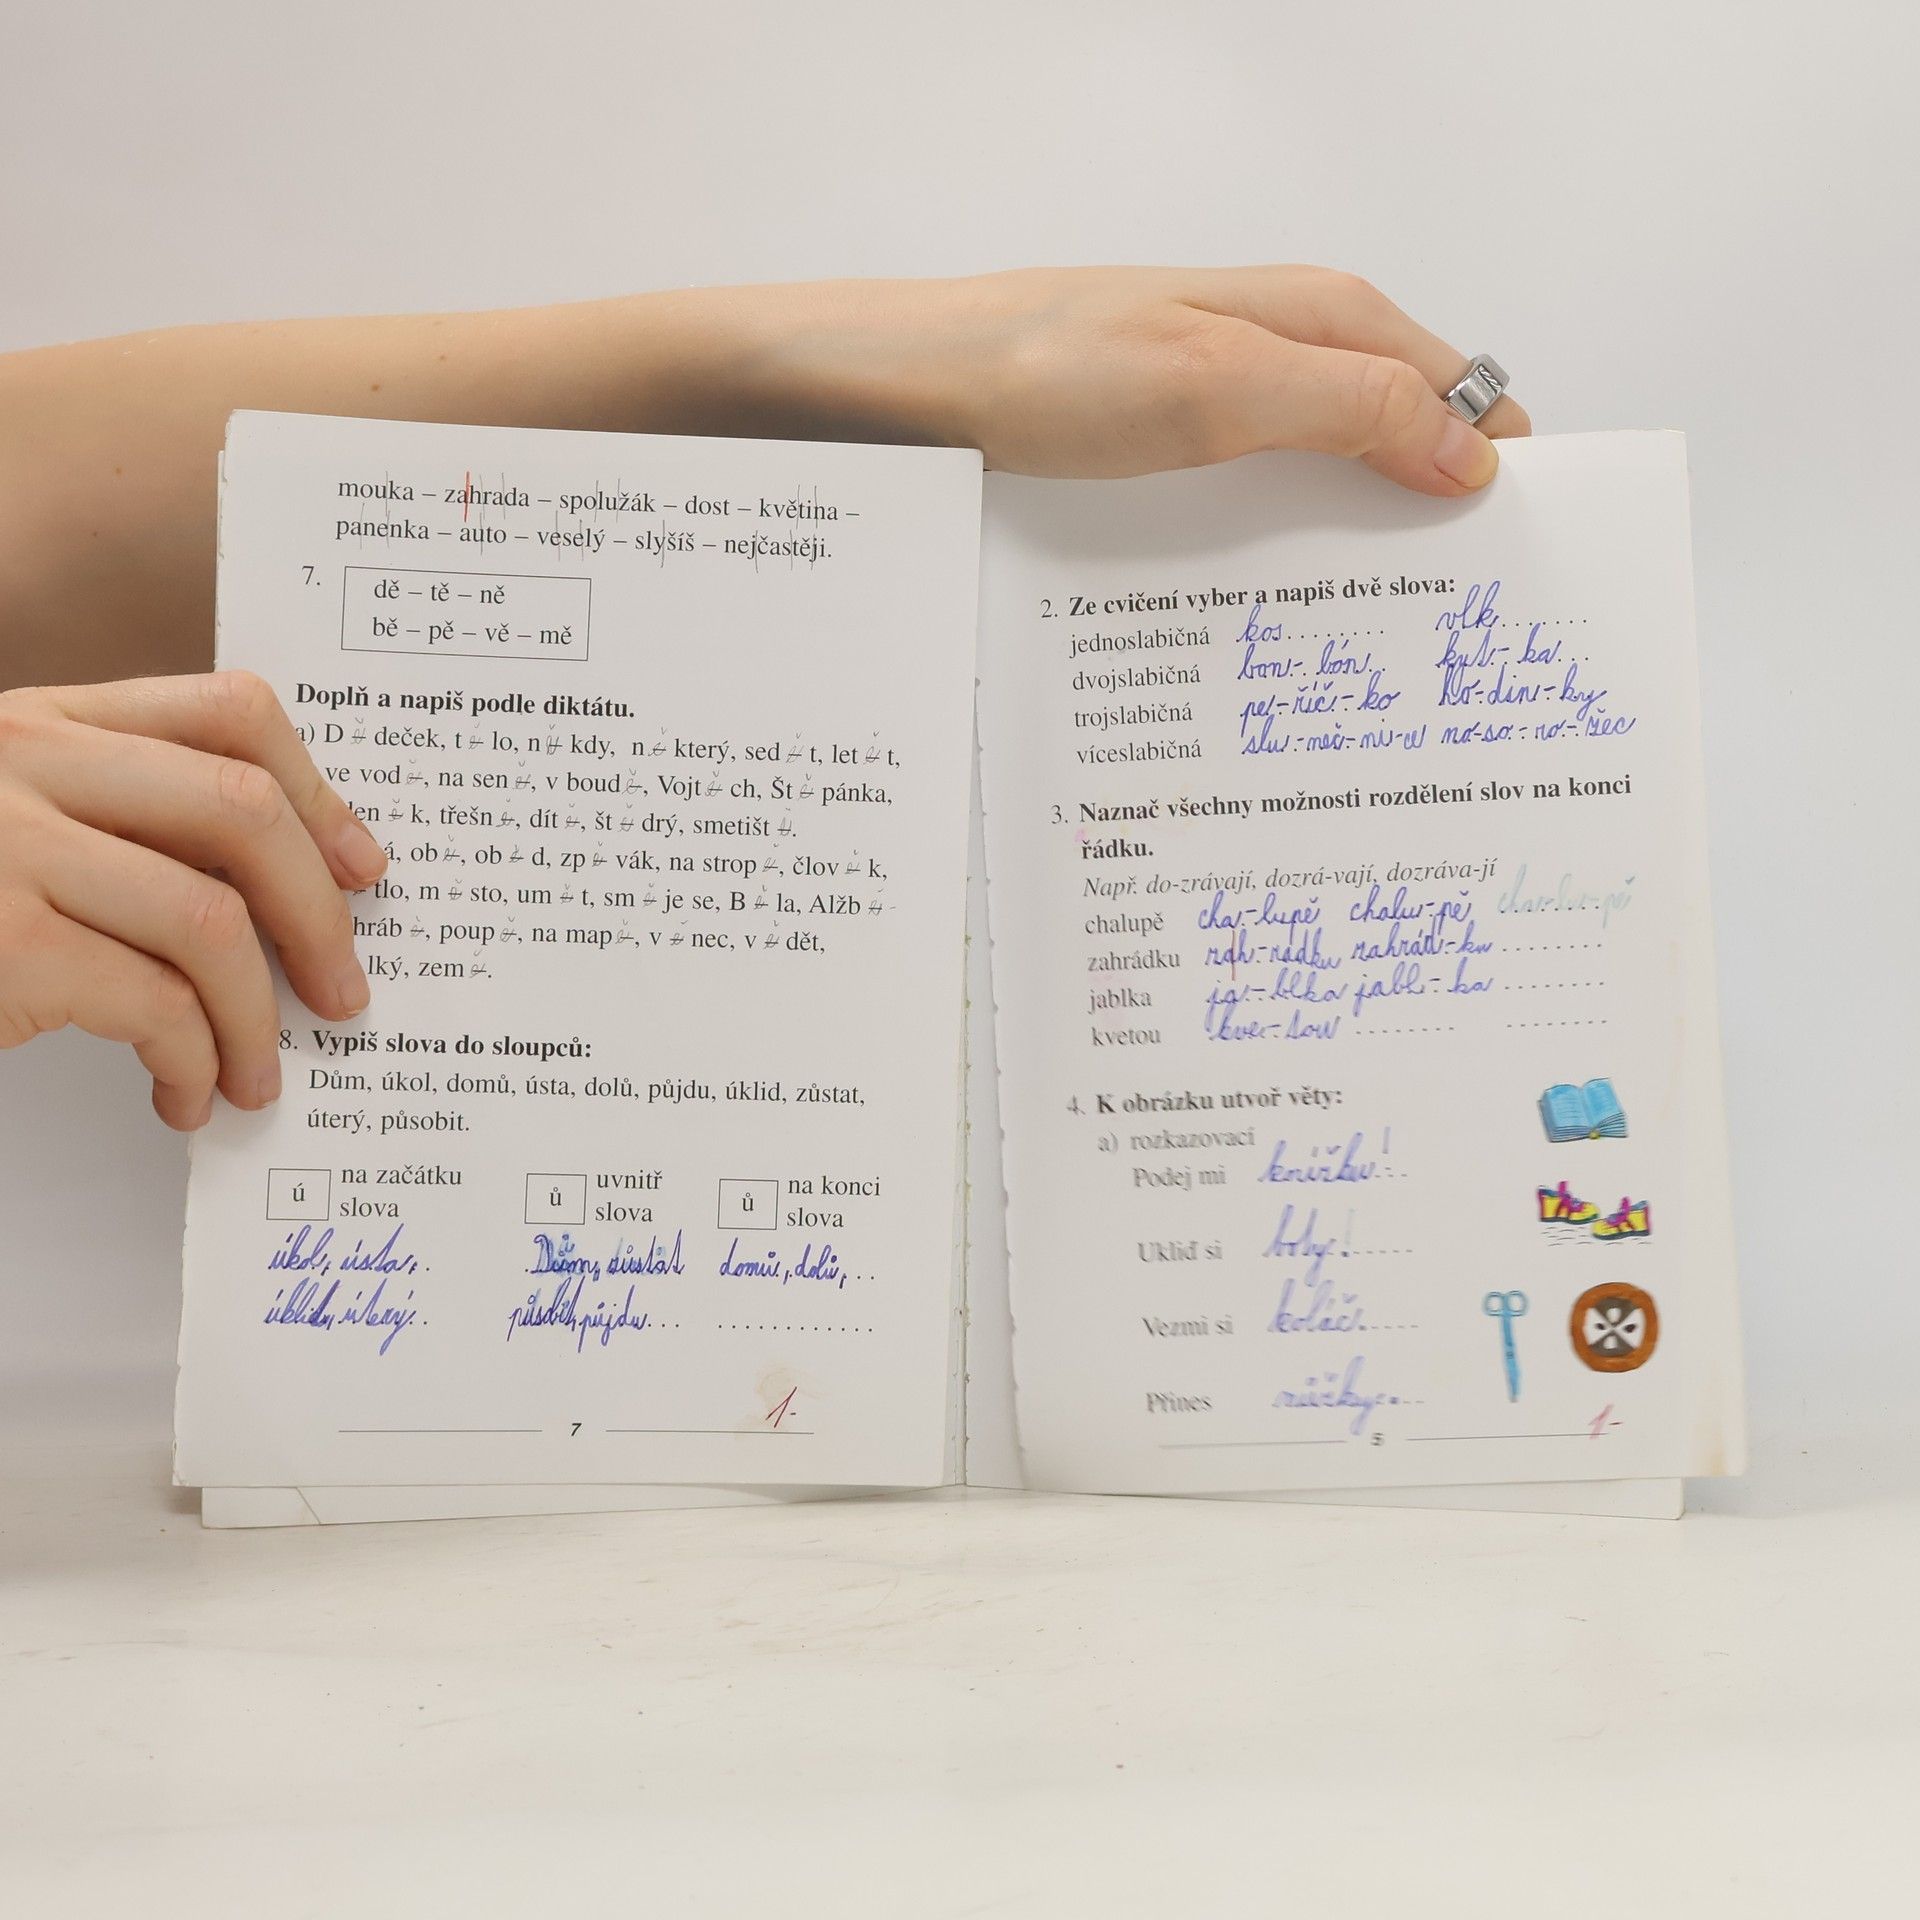 mouka – zahrada – spolužák – dost – květina –
panenka – auto – veselý – slyšíš – nejčastěji.
7.
dě – tě – ně
bě – pě – vě – mě
Doplň a napiš podle diktátu.
a) D ě deček, t ě lo, n ě kdy, n ě který, sed ě t, let ě t,
ve vod ě, na sen ě, v boud ě, Vojt ě ch, Št ě pánka,
en ě k, třešn ě, dít ě, št ě drý, smetišt ě.
á, ob ě, ob ě d, zp ě vák, na strop ě, člov ě k,
tlo, m ě sto, um ě t, sm ě je se, B ě la, Alžb ě -
hráb ě, poup ě, na map ě, v ě nec, v ě dět,
lký, zem ě.
8. Vypiš slova do sloupců:
Dům, úkol, domů, ústa, dolů, půjdu, úklid, zůstat,
úterý, působit.
ú na začátku slova
ů uvnitř slova
ů na konci slova
úkol, ústa, Dům, zůstat domů, dolů,
úklid, úterý působit, půjdu
1-
7
2. Ze cvičení vyber a napiš dvě slova:
jednoslabičná kos vlk
dvojslabičná bon - bón kyt - ka
trojslabičná pe - říč - ko ho - din - ky
víceslabičná slu - neč - ni - ce no - so - ro - žec
3. Naznač všechny možnosti rozdělení slov na konci
řádku.
Např. do-zrávají, dozrá-vají, dozráva-jí
chalupě cha - lupě chalu - pě cha - lu - pě
zahrádku zah - rádku zahrád - ku
jablka ja - blka jabl - ka
kvetou kve - tou
4. K obrázku utvoř věty:
a) rozkazovací
Podej mi knížku!
Ukliď si boty!
Vezmi si koláč.
Přines nůžky
1-
5